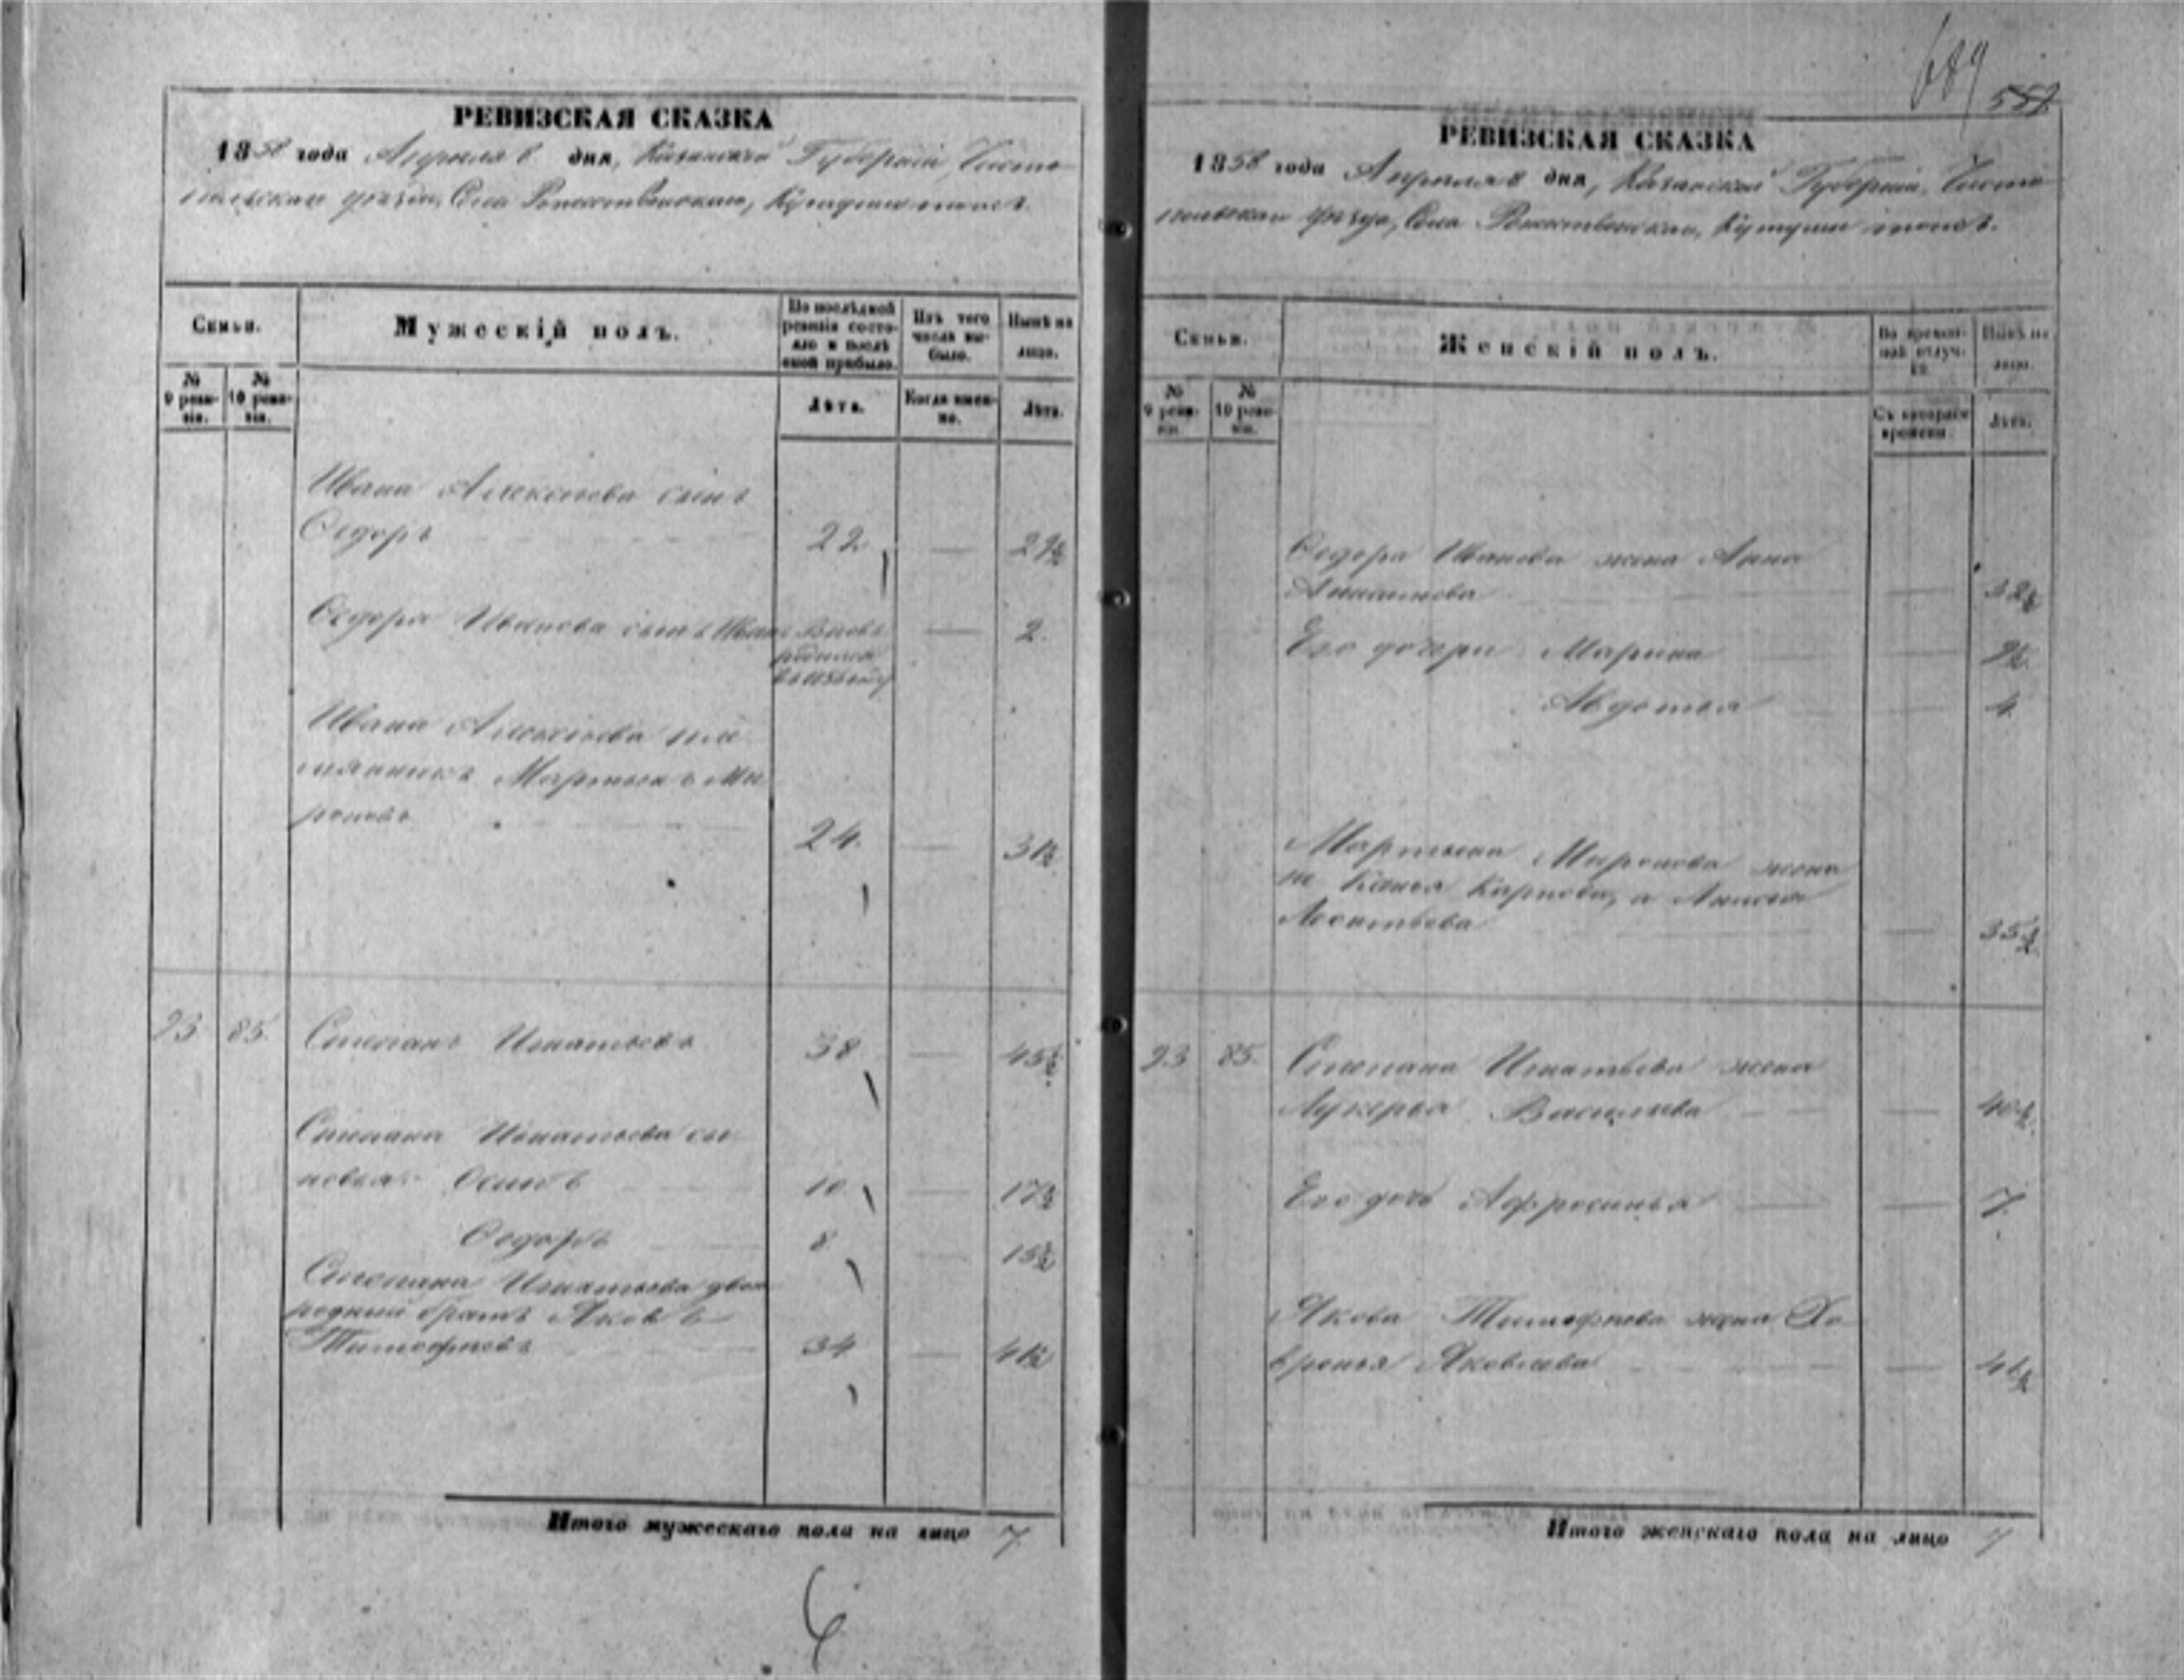 689
552
РЕВИЗСКАЯ СКАЗКА
1858 года Апреля 8 дня, Казанской Губерніи, Чисто
польскаго уѣзда, Села Рожественскаго, Кутуши тожъ.
Семьи.
№ 9 ревизіи.
№ 10 ревизіи.
Мужескій полъ.
По послѣдней ревизіи состояло и послѣ оной прибыло.
Лѣта.
Изъ того числа выбыло.
Когда именно.
Нынѣ на лицо.
Лѣта.
Ивана Алексѣева сынъ
Ѳедоръ 22 — 29½
Ѳедора Иванова сынъ Иванъ Вновь — 2.
родился
въ 1856 году
Ивана Алексѣева пле
мянникъ Мартынъ Ми
роновъ 24. — 31½
23 85. Степанъ Игнатьевъ 38 — 45½
Степана Игнатьева сы
новья: Осипъ 10 — 17½
Ѳедоръ 8 — 15½
Степана Игнатьева двою
родный братъ Яковъ
Тимофѣевъ 34 — 41½
Итого мужескаго пола на лицо 7
6
РЕВИЗСКАЯ СКАЗКА
1858 года Апреля 8 дня, Казанской Губерніи, Чисто
польскаго уѣзда, Села Рожественскаго, Кутуши тожъ.
Семьи.
№ 9 ревизіи.
№ 10 ревизіи.
Женскій полъ.
Во временной отлучкѣ.
Съ котораго времени.
Нынѣ на лицо.
Лѣта.
Ѳедора Иванова жена Анна
— 32½
Его дочери Марина — 9½
Авдотья — 4
Мартына Миронова жена
не Карпова, а
Леонтьева — 35½
23 85. Степана Игнатьева жена
Лукерья Василева — 40½
Его дочь Афросинья — 7.
Якова Тимофѣева жена Хав
ронья Яковлева — 41½
Итого женскаго пола на лицо 7